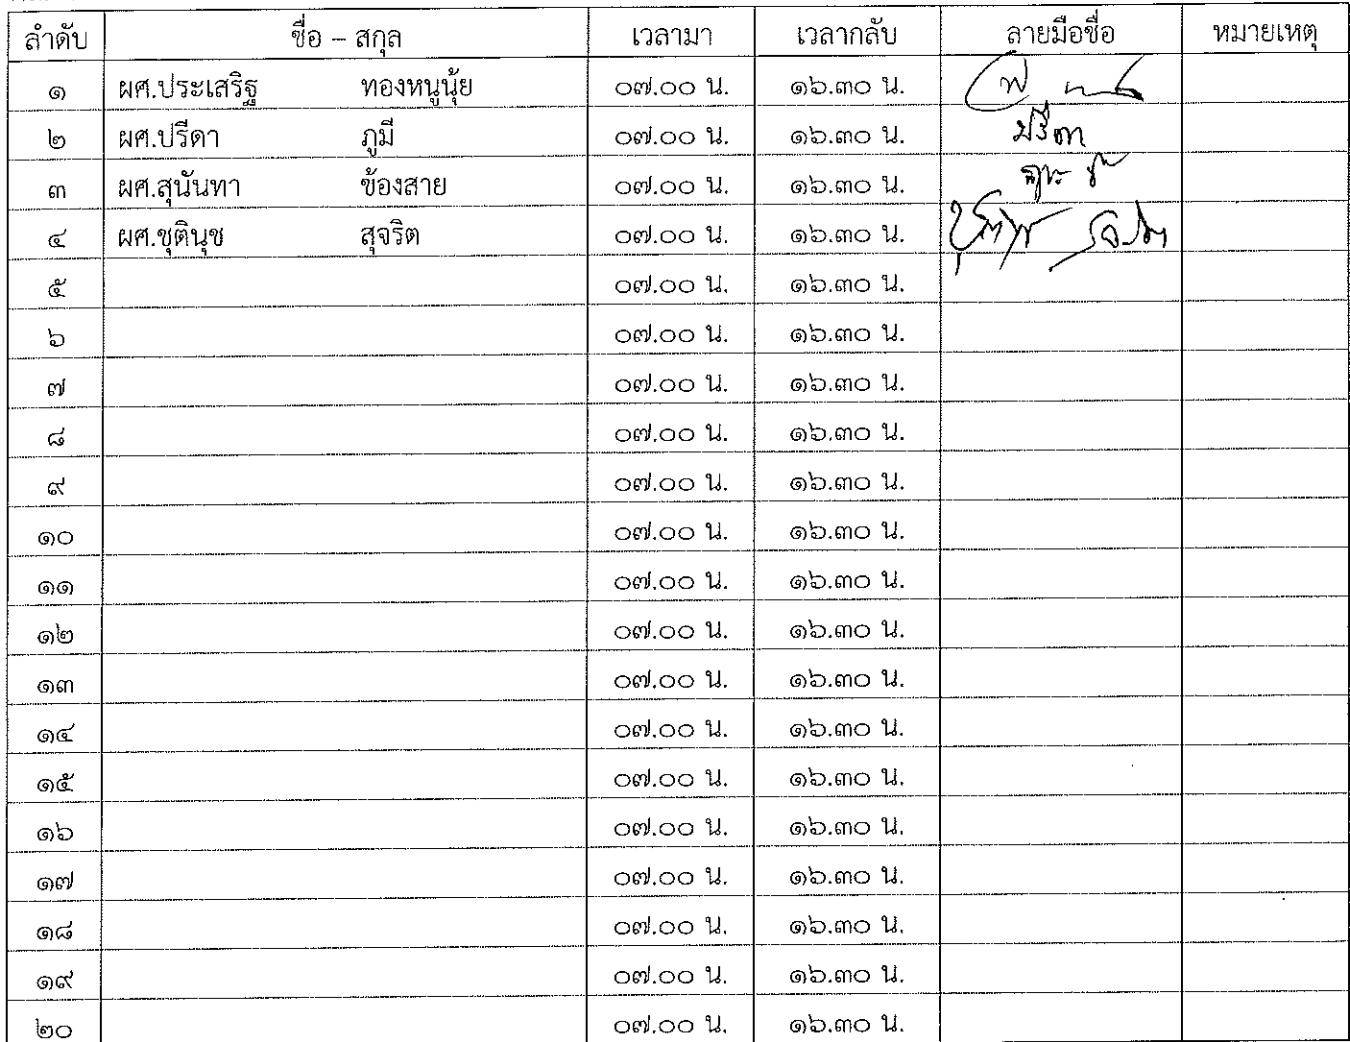 ลำดับ ชื่อ – สกุล เวลามา เวลากลับ ลายมือชื่อ หมายเหตุ
๑ ผศ.ประเสริฐ ทองหนูนุ้ย ๐๗.๐๐ น. ๑๖.๓๐ น.
๒ ผศ.ปรีดา ภูมี ๐๗.๐๐ น. ๑๖.๓๐ น. ปรีดา
๓ ผศ.สุนันทา ข้องสาย ๐๗.๐๐ น. ๑๖.๓๐ น.
๔ ผศ.ชุตินุช สุจริต ๐๗.๐๐ น. ๑๖.๓๐ น.
๕ ๐๗.๐๐ น. ๑๖.๓๐ น.
๖ ๐๗.๐๐ น. ๑๖.๓๐ น.
๗ ๐๗.๐๐ น. ๑๖.๓๐ น.
๘ ๐๗.๐๐ น. ๑๖.๓๐ น.
๙ ๐๗.๐๐ น. ๑๖.๓๐ น.
๑๐ ๐๗.๐๐ น. ๑๖.๓๐ น.
๑๑ ๐๗.๐๐ น. ๑๖.๓๐ น.
๑๒ ๐๗.๐๐ น. ๑๖.๓๐ น.
๑๓ ๐๗.๐๐ น. ๑๖.๓๐ น.
๑๔ ๐๗.๐๐ น. ๑๖.๓๐ น.
๑๕ ๐๗.๐๐ น. ๑๖.๓๐ น.
๑๖ ๐๗.๐๐ น. ๑๖.๓๐ น.
๑๗ ๐๗.๐๐ น. ๑๖.๓๐ น.
๑๘ ๐๗.๐๐ น. ๑๖.๓๐ น.
๑๙ ๐๗.๐๐ น. ๑๖.๓๐ น.
๒๐ ๐๗.๐๐ น. ๑๖.๓๐ น.